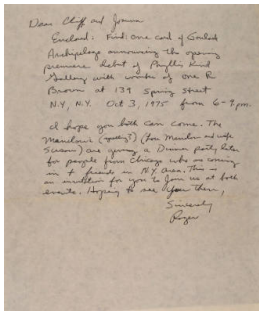 Dear Cliff and Joanna
Enclosed: Find: one card of Goulash
Archipelago announcing the opening
premiere debut of Phyllis Kind
Gallery with works of one R
Brown at 139 Spring Street
N.Y, N.Y. Oct 3, 1975 from 6-9 p.m.
I hope you both can come. The
Manilows (spelling?) (Lou Manilow and wife
Susan) are giving a Dinner party later
for people from Chicago who are coming
in + friends in N.Y. area. This is
an invitation for you to join us at both
events. Hoping to see you there,
Sincerely
Roger